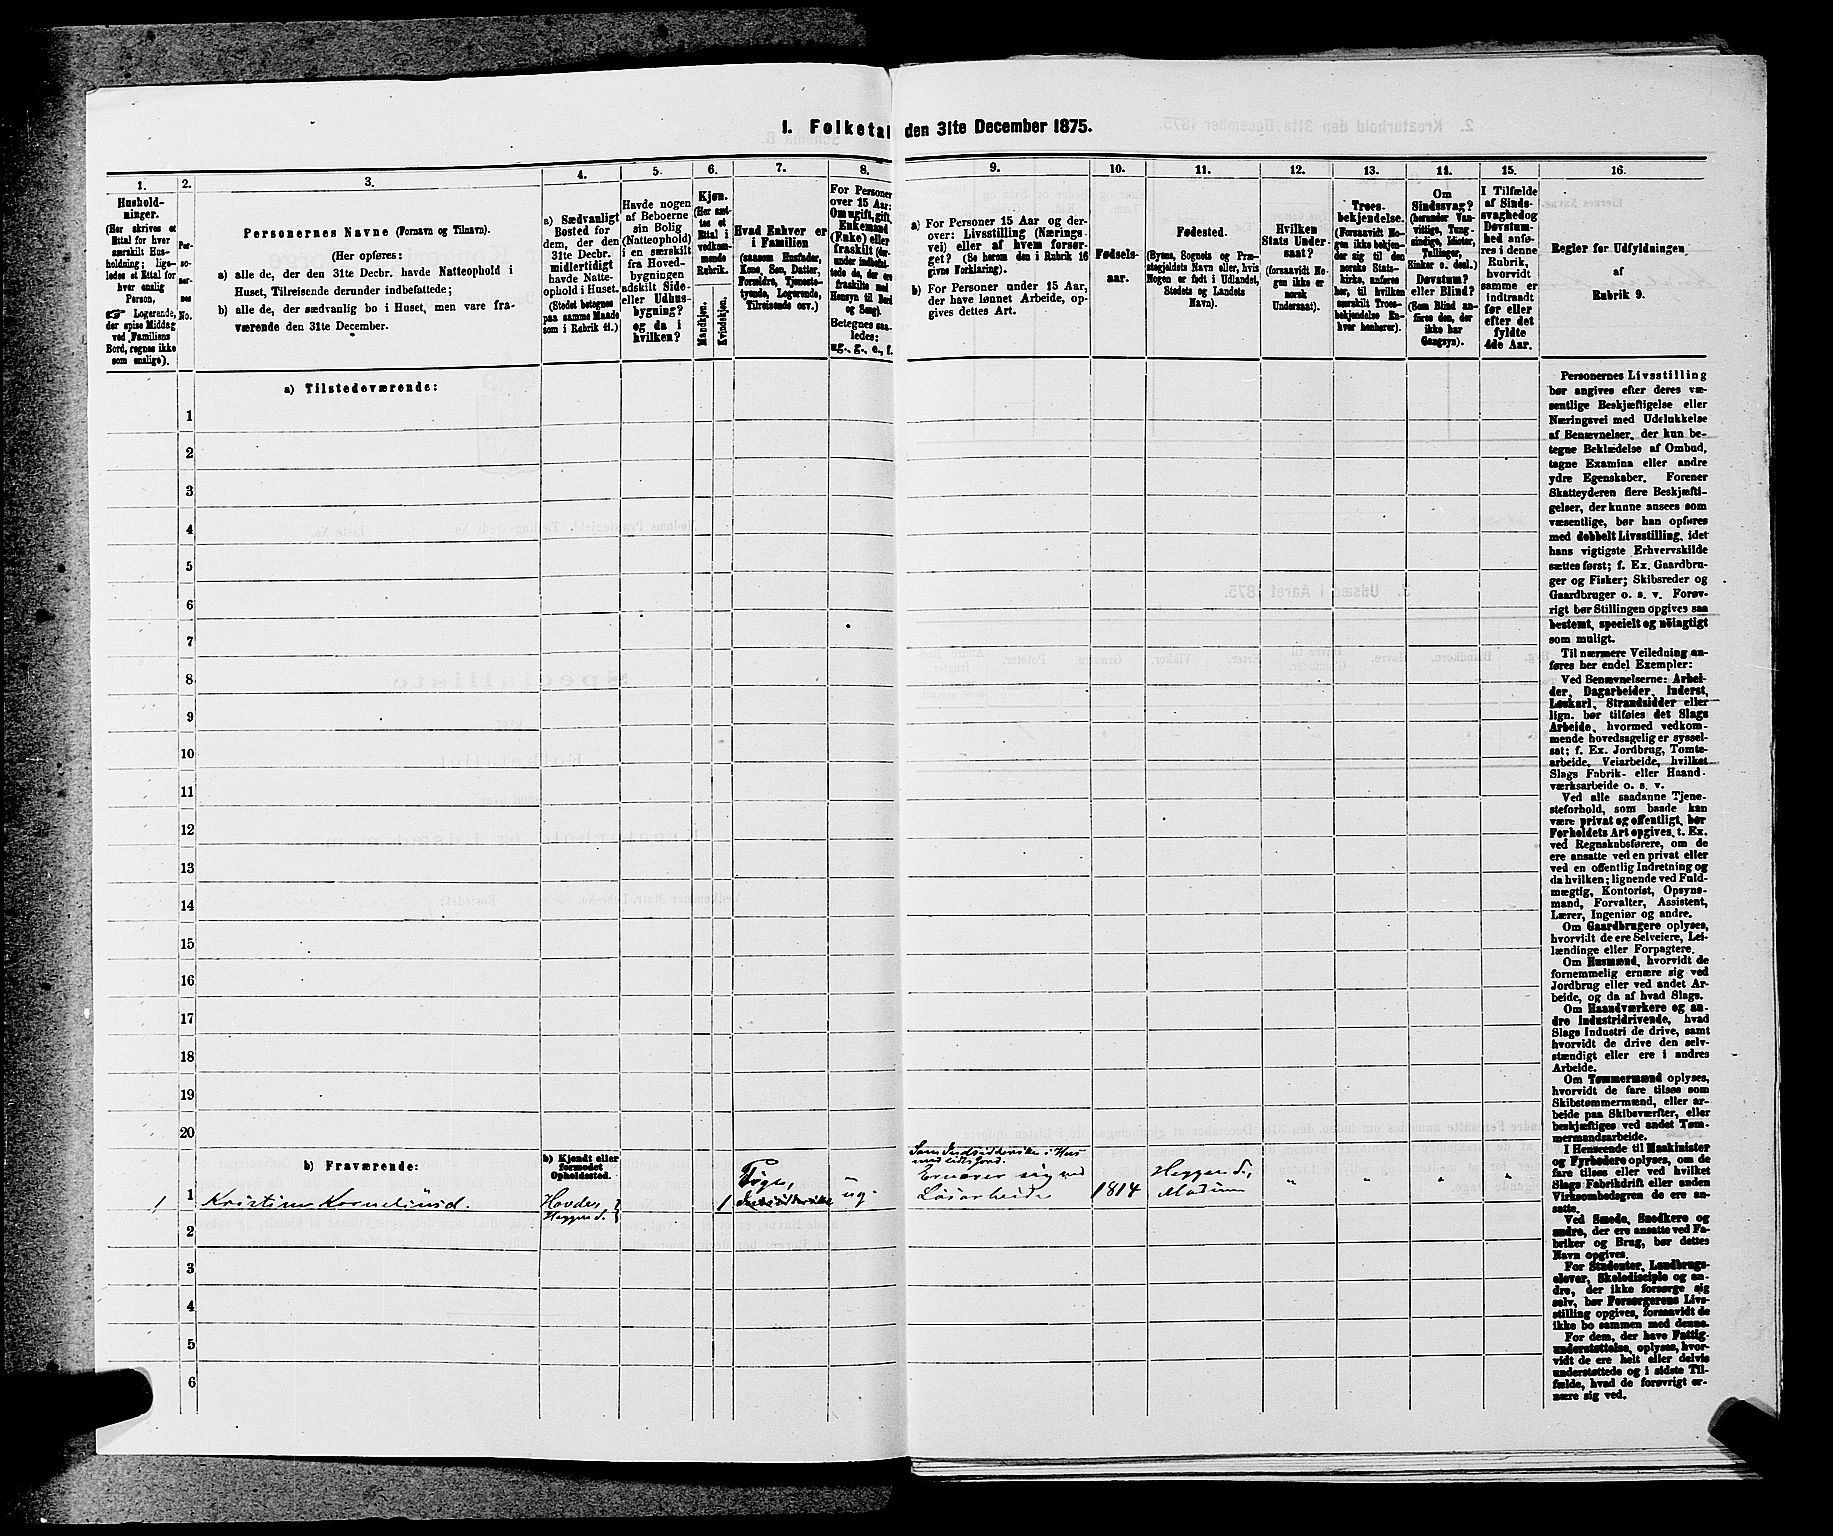 1. Folketal den 31te December 1875.
1.
Hushold-
ninger.
(Her skrives et
Ettal for hver
særskilt Hus-
holdning; lige-
ledes et Ettal for
hver enslig
Person.
☞ Logerende,
der spise Middag
ved Familiens
Bord, regnes ikke
som enslige).
2.
Per-
so-
ner-
nes
No.
3.
Personernes Navne (Fornavn og Tilnavn).
(Her opføres:
a) alle de, der den 31te Decbr. havde Natteophold i
Huset, Tilreisende derunder indbefattede;
b) alle de, der sædvanlig bo i Huset, men vare fra-
værende den 31te December.
4.
a) Sædvanligt
Bosted for
dem, der den
31te Decbr.
midlertidigt
havde Natte-
ophold i Huset.
(Stedet betegnes
paa samme Maade
som i Rubrik 11.)
5.
Havde nogen
af Beboerne
sin Bolig
(Natteophold)
i en særskilt
fra Hoved-
bygningen
adskilt Side-
eller Udhus-
bygning?
og da i
hvilken?
6.
Kjøn.
(Her sæt-
tes et
Ettal i
vedkom-
mende
Rubrik.
Mandkjøn.
Kvindekjøn.
7.
Hvad Enhver er
i Familien
(saasom Husfader,
Kone, Søn, Datter,
Forældre, Tjeneste-
tyende, Logerende,
Tilreisende osv.)
8.
For Personer
over 15 Aar:
Om ugift, gift,
Enkemand
(Enke) eller
fraskilt (der-
under indbefat-
tede de, der ere
fraskilte med
Hensyn til Bord
og Seng).
Betegnes saa-
ledes:
ug., g., e., f.
9.
a) For Personer 15 Aar og der-
over: Livsstilling (Nærings-
vei) eller af hvem forsør-
get? (Se herom den i Rubrik 16
givne Forklaring).
b) For Personer under 15 Aar,
der have lønnet Arbeide, op-
gives dettes Art.
10.
Fødsels-
aar.
11.
Fødested.
(Byens, Sognets og Præ-
stegjeldets Navn eller, hvis
Nogen er født i Udlandet,
Stedets og Landets
Navn).
12.
Hvilken
Stats Under-
saat?
(forsaavidt No-
gen ikke er
norsk
Undersaat).
13.
Troes-
bekjendelse.
(Forsaavidt No-
gen ikke bekjen-
der sig til den
norske Stats-
kirke, anføres
her, til hvilken
særskilt Troes-
bekjendelse En-
hver henhører).
14.
Om
Sindssvag?
(herunder Van-
vittige, Tung-
sindige, Idioter,
Tullinger,
Sinker o. desl.)
Døvstum?
eller Blind?
(Som Blind an-
føres den, der
ikke har
Gangsyn).
15.
I Tilfælde
af Sinds-
svaghed og
Døvstum-
hed anfø-
res i denne
Rubrik,
hvorvidt
samme er
indtraadt
før eller
efter det
fyldte
4de Aar.
16.
Regler for Udfyldningen
af
Rubrik 9.
a) Tilstedeværende:
1
2
3
4
5
6
7
8
9
10
11
12
13
14
15
16
17
18
19
20
b) Fraværende:
b) Kjendt eller
formodet
Opholdssted.
1 1 Kristine Kornelius d. Hovde, Heggen s. 1 ug. Ernærer sig ved Løsarbeide 1814 Heggen S., Modum " " " "
2
3
4
5
6
Personernes Livsstilling
bør angives efter deres væ-
sentlige Beskjæftigelse eller
Næringsvei med Udelukkelse
af Benævnelser, der kun be-
tegne Beklædelse af Ombud,
tagne Examina eller andre
ydre Egenskaber. Forener
Skatteyderen flere Beskjæfti-
gelser, der kunne ansees som
væsentlige, bør han opføres
med dobbelt Livsstilling, idet
hans vigtigste Erhvervskilde
sættes først; f. Ex. Gaardbru-
ger og Fisker; Skibsreder og
Gaardbruger o. s. v. Forøv-
rigt bør Stillingen opgives saa
bestemt, specielt og nöiagtigt
som muligt.
Til nærmere Veiledning an-
føres her endel Exempler:
Ved Benævnelserne: Arbei-
der, Dagarbeider, Inderst,
Løskarl, Strandsidder eller
lign. bør tilføies det Slags
Arbeide, hvormed vedkom-
mende hovedsagelig er syssel-
sat; f. Ex. Jordbrug, Tomte-
arbeide, Veiarbeide, hvilket
Slags Fabrik- eller Haand-
værksarbeide o. s. v.
Ved alle saadanne Tjene-
steforhold, som baade kan
være privat og offentligt, bør
Forholdets Art opgives, t. Ex.
ved Regnskabsførere, om de
ere ansatte ved en privat eller
ved en offentlig Indretning og
da hvilken; lignende ved Fuld-
mægtig, Kontorist, Opsyns-
mand, Forvalter, Assistent,
Lærer, Ingeniør og andre.
Om Gaardbrugere oplyses,
hvorvidt de ere Selveiere, Lei-
lændinge eller Forpagtere.
Om Husmænd, hvorvidt de
fornemmelig ernære sig ved
Jordbrug eller ved andet Ar-
beide, og da af hvad Slags.
Om Haandværkere og an-
dre Industridrivende, hvad
Slags Industri de drive, samt
hvorvidt de drive den selv-
stændigt eller ere i andres
Arbeide.
Om Tømmermænd oplyses,
hvorvidt de fare tilsøs som
Skibstømmermænd, eller ar-
beide paa Skibsværfter, eller
beskjæftiges ved andet Tøm-
mermandsarbeide.
I Henseende til Maskinister
og Fyrbødere oplyses, om de
fare tilsøs eller ved hvilket
Slags Fabrikdrift eller anden
Virksomhedsgren de ere an-
satte.
Ved Smede, Snedkere og
andre, der ere ansatte ved Fa-
briker og Brug, bør dettes
Navn opgives.
For Studenter, Landbrugs-
elever, Skoledisciple og an-
dre, der ikke forsørge sig
selv, bør Forsørgerens Livs-
stilling opgives, forsaavidt de
ikke bo sammen med denne.
For dem, der have Fattig-
understøttelse, oplyses, hvor-
vidt de ere helt eller delvis
understøttede og i sidste Til-
fælde, hvad de forøvrigt er-
nære sig ved.